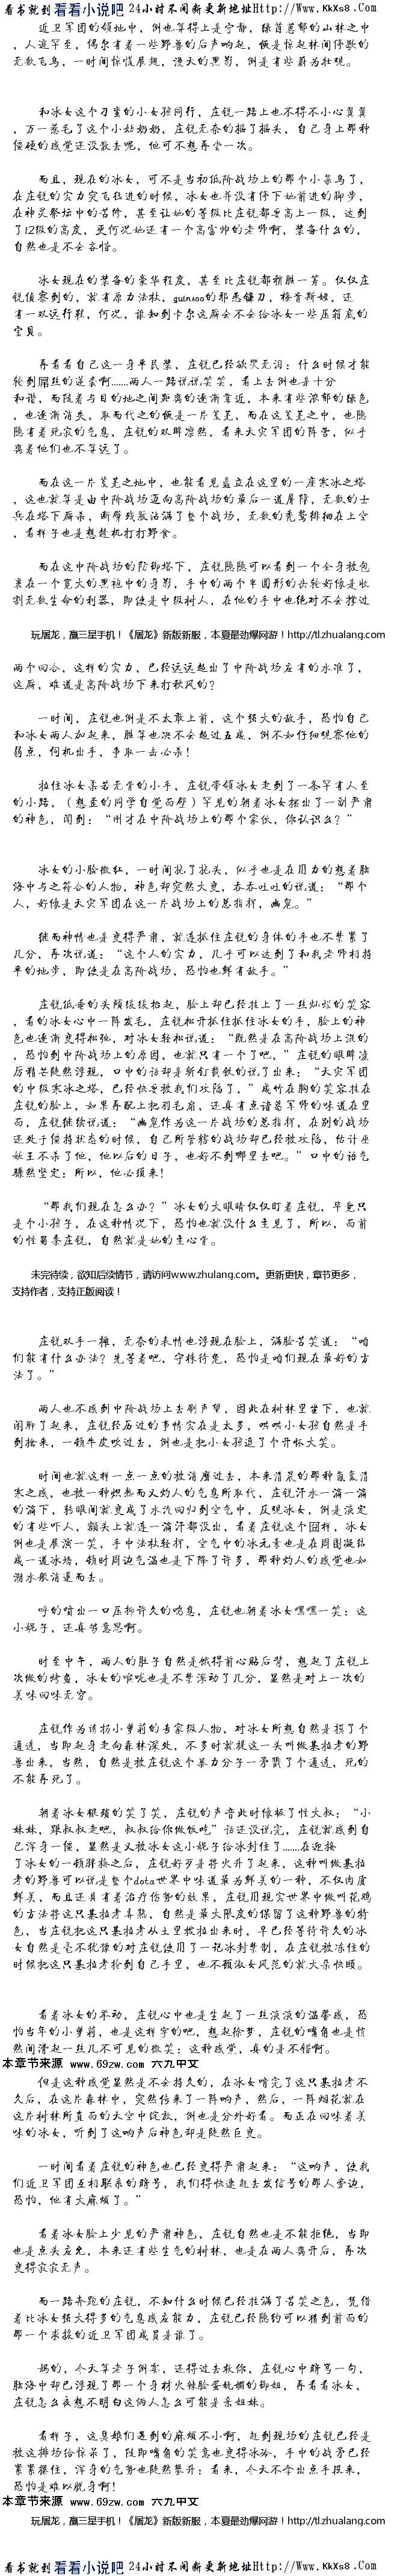 看书就到 看看小说吧 24小时不间断更新地址Http://Www.KkXs8.Com
近卫军团的领地中，倒也算得上是宁静，绿茵葱郁的山林之中
，人迹罕至，偶尔有着一些野兽的后声响起，便是惊起林间停歇的
无数飞鸟，一时间惊慌展翅，漫天的黑影，倒是有些蔚为壮观。
和冰女这个刁蛮的小女孩同行，庄锐一路上也不得不小心翼翼
，万一惹毛了这个小姑奶奶，庄锐无奈的摇了摇头，自己身上那种
僵硬的感觉还没散去呢，他可不想再尝一次。
而且，现在的冰女，可不是当初低阶战场上的那个小菜鸟了，
在庄锐的实力突飞猛进的时候，冰女也并没有停下她前进的脚步，
在神灵祭坛中的苦修，甚至让她的等级比庄锐都要高上一级，达到
了12级的高度，更何况她还有一个高富帅的老师啊，装备什么的，
自然也是不会吝惜。
冰女现在的装备的豪华程度，甚至比庄锐都稍胜一筹。仅仅庄
锐侦察到的，就有原力法杖，guinsoo的邪恶镰刀，梅肯斯姆，还
有一双远行鞋，何况，谁知到卡尔这厮会不会给冰女一些压箱底的
宝贝。
再看看自己这一身平民装，庄锐已经欲哭无泪：什么时候才能
轮到屌丝的逆袭啊.......两人一路说说笑笑，看上去倒也是十分
和谐，而随着与目的地之间距离的逐渐靠近，本来有些浓郁的绿色
，也逐渐消失，取而代之的便是一片荒芜，而在这荒芜之中，也隐
隐有着死寂的气息，庄锐的双眸凛然，看来天灾军团的阵营，似乎
离着他们也不算远了。
而在这一片荒芜之地中，也能看见矗立在这里的一座寒冰之塔
，这也就算是由中阶战场迈向高阶战场的最后一道屏障，无数的士
兵在塔下厮杀，断臂残肢沾满了整个战场，无数的秃鹫徘徊在上空
，看样子也是想趁机打打野食。
而在这中阶战场的防御塔下，庄锐隐隐可以看到一个全身被包
裹在一个宽大的黑袍中的身影，手中的两个半圆形的齿轮好像是收
割无数生命的利器，即使是中级树人，在他的手中也绝对不会撑过
玩屠龙，赢三星手机！《屠龙》新版新服，本夏最劲爆网游！http://tl.zhualang.com
两个回合，这样的实力，已经远远超出了中阶战场应有的水准了，
这厮，难道是高阶战场下来打秋风的？
一时间，庄锐也倒是不太敢上前，这个强大的敌手，恐怕自己
和冰女两人加起来，胜算也决不会超过五成，倒不如仔细观察他的
弱点，伺机出手，争取一击必杀！
拉住冰女柔若无骨的小手，庄锐带领冰女走到了一条罕有人至
的小路，（想歪的同学自觉面壁）罕见的朝着冰女摆出了一副严肃
的神色，问到：“刚才在中阶战场上的那个家伙，你认识么？”
冰女的小脸微红，一时间挠了挠头，似乎也是在用力的想着脑
海中与之符合的人物，神色却突然大变，吞吞吐吐的说道：“那个
人，好像是天灾军团在这一片战场上的总指挥，幽鬼。”
继而神情也是变得严肃，就连抓住庄锐的身体的手也不禁紧了
几分，再次说道：“这个人的实力，几乎可以达到了和我老师相持
平的地步，即使是在高阶战场，恐怕也鲜有敌手。”
庄锐低垂的头颅缓缓抬起，脸上却已经挂上了一丝灿烂的笑容
，看的冰女心中一阵发毛，庄锐松开抓住抓住冰女的手，脸上的神
色也逐渐变得松弛，对冰女轻松说道：“既然是在高阶战场上混的
，恐怕到中阶战场上的原因，也就只有一个了吧，”庄锐的眼眸凌
厉精芒陡然浮现，口中的话却是斩钉截铁的说了出来：“天灾军团
的中级寒冰之塔，已经快要被我们攻陷了，”成竹在胸的笑容挂在
庄锐的脸上，如果再配上把羽毛扇，还真有点诸葛军师的味道在里
面，庄锐继续说道：“幽鬼作为这一片战场的总指挥，在别的战场
还处于僵持状态的时候，自己所管辖的战场却已经被攻陷，估计巫
妖王不杀了他，他以后的日子，也好不到哪里去吧。”口中的语气
骤然坚定：所以，他必须来！
“那我们现在怎么办？”冰女的大眼睛仅仅盯着庄锐，毕竟只
是个小孩子，在这种情况下，恐怕也就没什么主见了，所以，面前
的性蜀黍庄锐，自然就是她的主心骨。
未完待续，欲知后续情节，请访问www.zhulang.com。更新更快，章节更多，
支持作者，支持正版阅读！
庄锐双手一摊，无奈的表情也浮现在脸上，满脸苦笑道：“咱
们能有什么办法？先等着吧，守株待兔，恐怕是咱们现在最好的方
法了。”
两人也不感到中阶战场上去刷声望，因此在树林里坐下，也就
闲聊了起来，庄锐经历过的事情实在是太多，哄哄小女孩自然是手
到擒来，一顿牛皮吹过去，倒也是把小女孩逗了个开怀大笑。
时间也就这样一点一点的被消磨过去，本来清晨的那种氤氲清
寒之感，也被一种炽热而又灼人的气息所取代，庄锐汗水一滴一滴
的滴下，转眼间就变成了水汽回归到空气中，反观冰女，倒是淡定
的有些吓人，额头上就连一滴汗都没出，看着庄锐这个囧样，冰女
倒也是展演一笑，手中法杖轻挥，空气中的冰元素也是在周围凝结
成一道冰墙，顿时周边气温也是下降了许多，那种灼人的感觉也如
潮水般消退而去。
呼的喷出一口压抑许久的喘息，庄锐也朝着冰女嘿嘿一笑：这
小妮子，还真够意思啊。
时至中午，两人的肚子自然是饿得前心贴后背，想起了庄锐上
次做的烤鱼，冰女的喉咙也是不禁滚动了几分，显然是对上一次的
美味回味无穷。
庄锐作为诱拐小萝莉的专家级人物，对冰女所想自然是摸了个
通透，当即起身走向森林深处，不多时就捉这一头叫做基拉考的野
兽出来，当然，自然是被庄锐这个暴力分子一矛戳了个通透，死的
不能再死了。
朝着冰女猥琐的笑了笑，庄锐的声音此时像极了怪大叔：“小
妹妹，跟叔叔走吧，叔叔给你做饭吃”话还没说完，庄锐就感到自
己浑身一僵，显然是又被冰女这小妮子给冰封住了.......在迎接
了冰女的一顿胖揍之后，庄锐好歹是将火升了起来，这种叫做基拉
考的野兽可以说是整个dota世界中味道最为鲜美的一种，不仅肉质
鲜美，而且还具有着治疗伤势的效果，庄锐用现实世界中做叫花鸡
的方法将这只基拉考弄熟，自然是最大限度的保留了这种野兽的特
色，当庄锐把这只基拉考从土里挖掘出来时，早已经等待许久的冰
女自然是毫不犹豫的对庄锐使用了一记冰封禁制，在庄锐被冻住的
时候把这只基拉考抢到自己手里，也不顾淑女风范的就大朵快颐。
看着冰女的举动，庄锐心中也是生起了一丝淡淡的温馨感，恐
怕当年的小萝莉，也是这样子的吧，想起徐梦，庄锐的嘴角也是悄
然间滑起一丝几不可见的微笑：这种感觉，真的是不错啊。
本章节来源 www.69zw.com 六九中文
但是这种感觉显然是不会持久的，在冰女啃完了这只基拉考不
久后，在这片森林中，突然传来了一阵响声，然后，一阵烟花就在
这片树林所直面的天空中绽放，倒也是分外好看。而正在回味着美
味的冰女，听到了这响声后神色却是陡然巨变。
一时间看着庄锐的神色也已经变得严肃起来：“这响声，使我
们近卫军团互相联系的暗号，我们得快速赶去发信号的那人旁边，
恐怕，他有大麻烦了。”
看着冰女脸上少见的严肃神色，庄锐自然也是不能拒绝，当即
也是点头应允，本来还有些生气的树林，也是在两人离开后，再次
变得寂寂无声。
而一路奔跑的庄锐，不知什么时候已经挂满了苦笑之色，凭借
着比冰女强大得多的气息感应能力，庄锐已经隐约可以猜到前面的
那一个求援的近卫军团成员是谁了。
妈的，今天算老子倒霉，还得过去救你，庄锐心中暗骂一句，
脑海中却已浮现了那一个身材火辣脸蛋妩媚的御姐，再看看冰女，
庄锐怎么也想不明白这俩人怎么可能是亲姐妹。
看样子，这臭娘们遇到的麻烦不小啊，赶到现场的庄锐已经是
被这排场给惊呆了，随即嘴角的笑意也变得冰冷，手中的战矛已经
紧紧握住，浑身的气势也陡然攀升：看来，今天不拿出点手段来，
恐怕是难以脱身啊！
本章节来源 www.69zw.com 六九中文
玩屠龙，赢三星手机！《屠龙》新版新服，本夏最劲爆网游！http://tl.zhualang.com
看书就到 看看小说吧 24小时不间断更新地址Http://Www.KkXs8.Com